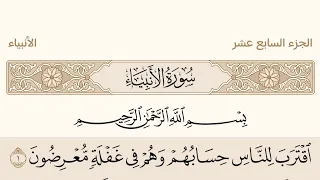 الجزء السابع عشر
الأنبياء
سُورَةُ الأَنبِيَاءِ
بِسْمِ اللَّهِ الرَّحْمَٰنِ الرَّحِيمِ
ٱقْتَرَبَ لِلنَّاسِ حِسَابُهُمْ وَهُمْ فِى غَفْلَةٍ مُّعْرِضُونَ ١